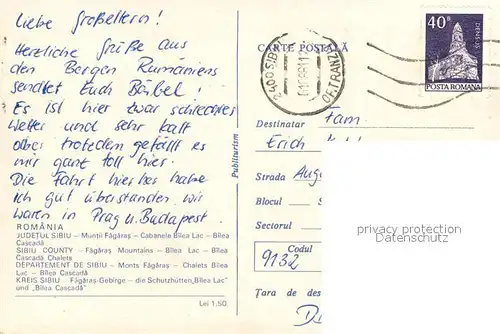 Liebe Großeltern!
Herzliche Grüße aus
den Bergen Rumäniens
sendet Euch Bärbel!
Es ist hier zwar schlechtes
Wetter und sehr kalt
aber trotzdem gefällt es
mir ganz toll hier.
Die Fahrt hierher habe
ich gut überstanden. wir
waren in Prag u. Budapest.
ROMÂNIA
JUDEŢUL SIBIU – Munţii Făgăraş – Cabanele Bîlea Lac – Bîlea
Cascadă
SIBIU COUNTY – Făgăraş Mountains – Bîlea Lac – Bîlea
Cascadă Chalets
DEPARTEMENT DE SIBIU – Monts Făgăraş – Chalets Bîlea
Lac – Bîlea Cascadă
KREIS SIBIU – Făgăraş-Gebirge – die Schutzhütten „Bîlea Lac"
und „Bîlea Cascadă"
Lei 1,50
Publiturism
CARTE POŞTALĂ
2400 SIBIU
OF. TRANZIT
40B
DENSUS
POSTA ROMANA
Destinatar Fam.
Erich
Strada Aug
Blocul
Sectorul
Codul
9132
Ţara de des
privacy protection
Datenschutz